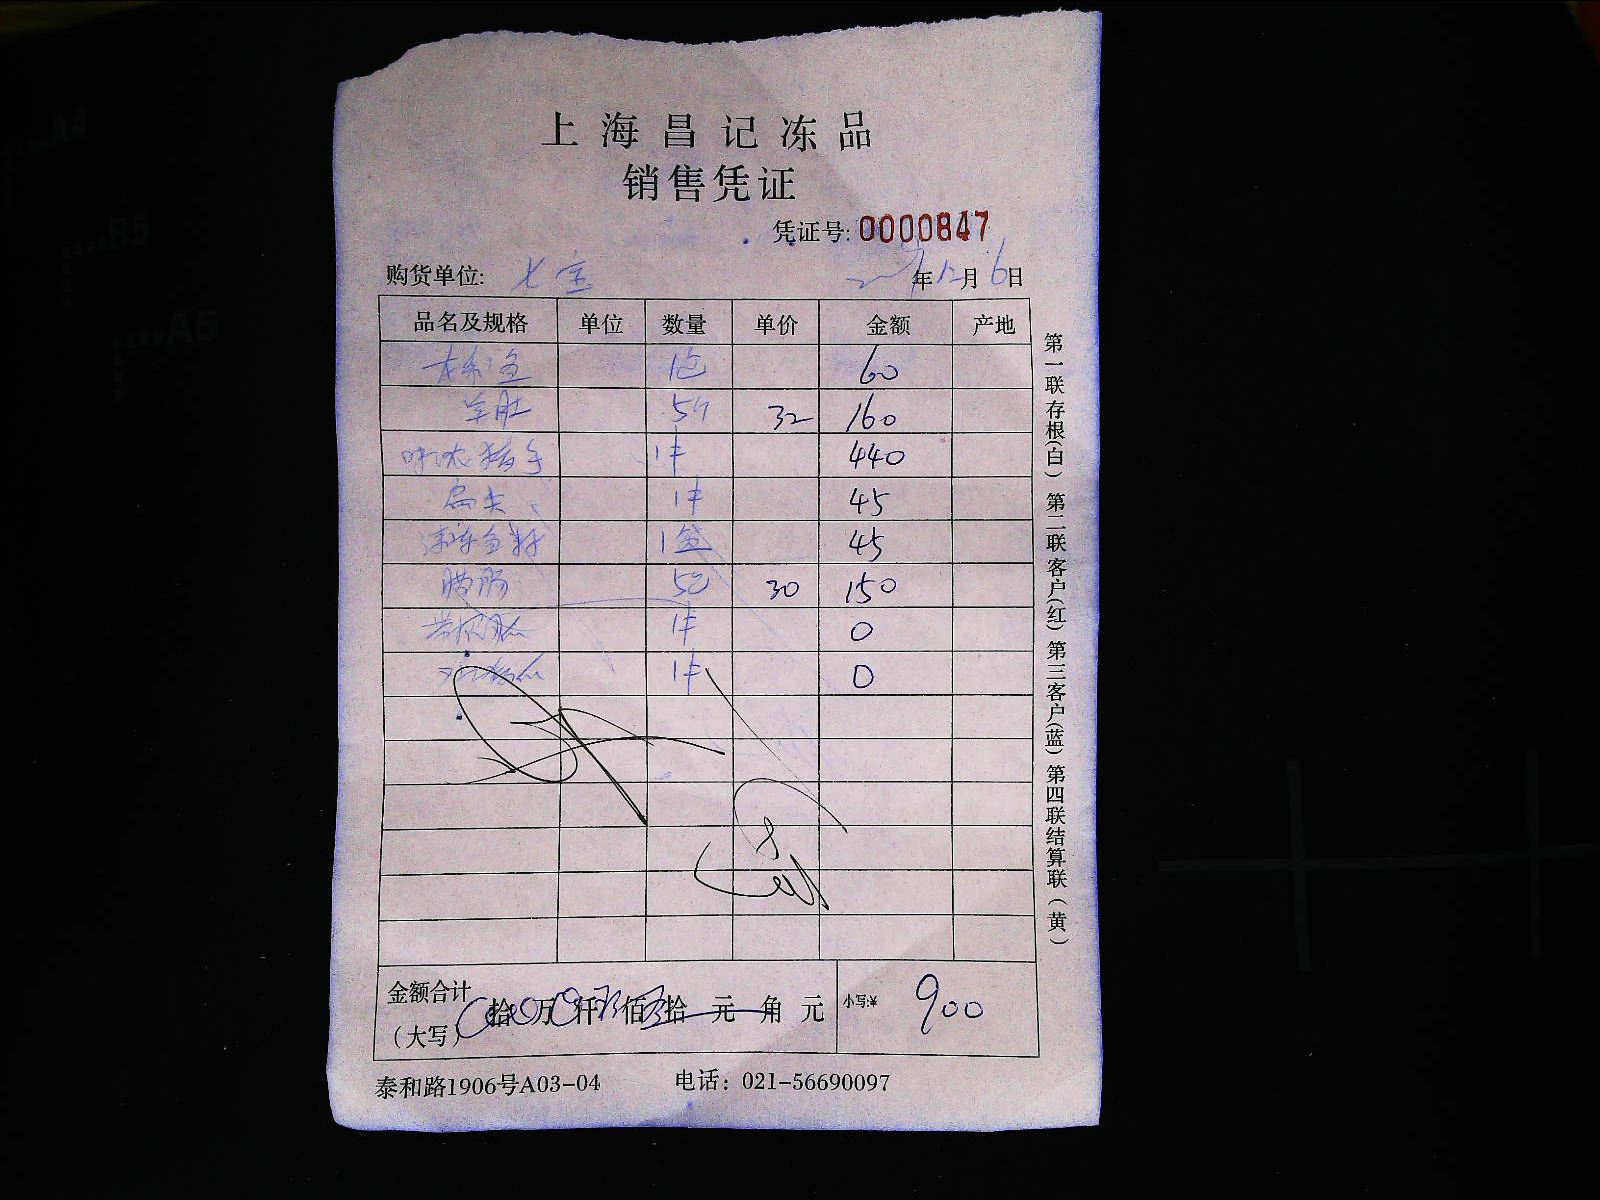 上海昌记冻品
销售凭证
凭证号: 0000847
购货单位: 七宝 年12月6日
品名及规格 单位 数量 单价 金额 产地
1包 60
羊肚 5斤 32 160
味浓猪手 1件 440
扁尖 1件 45
1盒 45
腊肠 5包 30 150
1件 0
1件 0
金额合计(大写) 拾 万 仟 佰 拾 元 角 元 小写:¥ 900
泰和路1906号A03-04 电话: 021-56690097
第一联存根(白) 第二联客户(红) 第三客户(蓝) 第四联结算联(黄)
A4
B5
A5